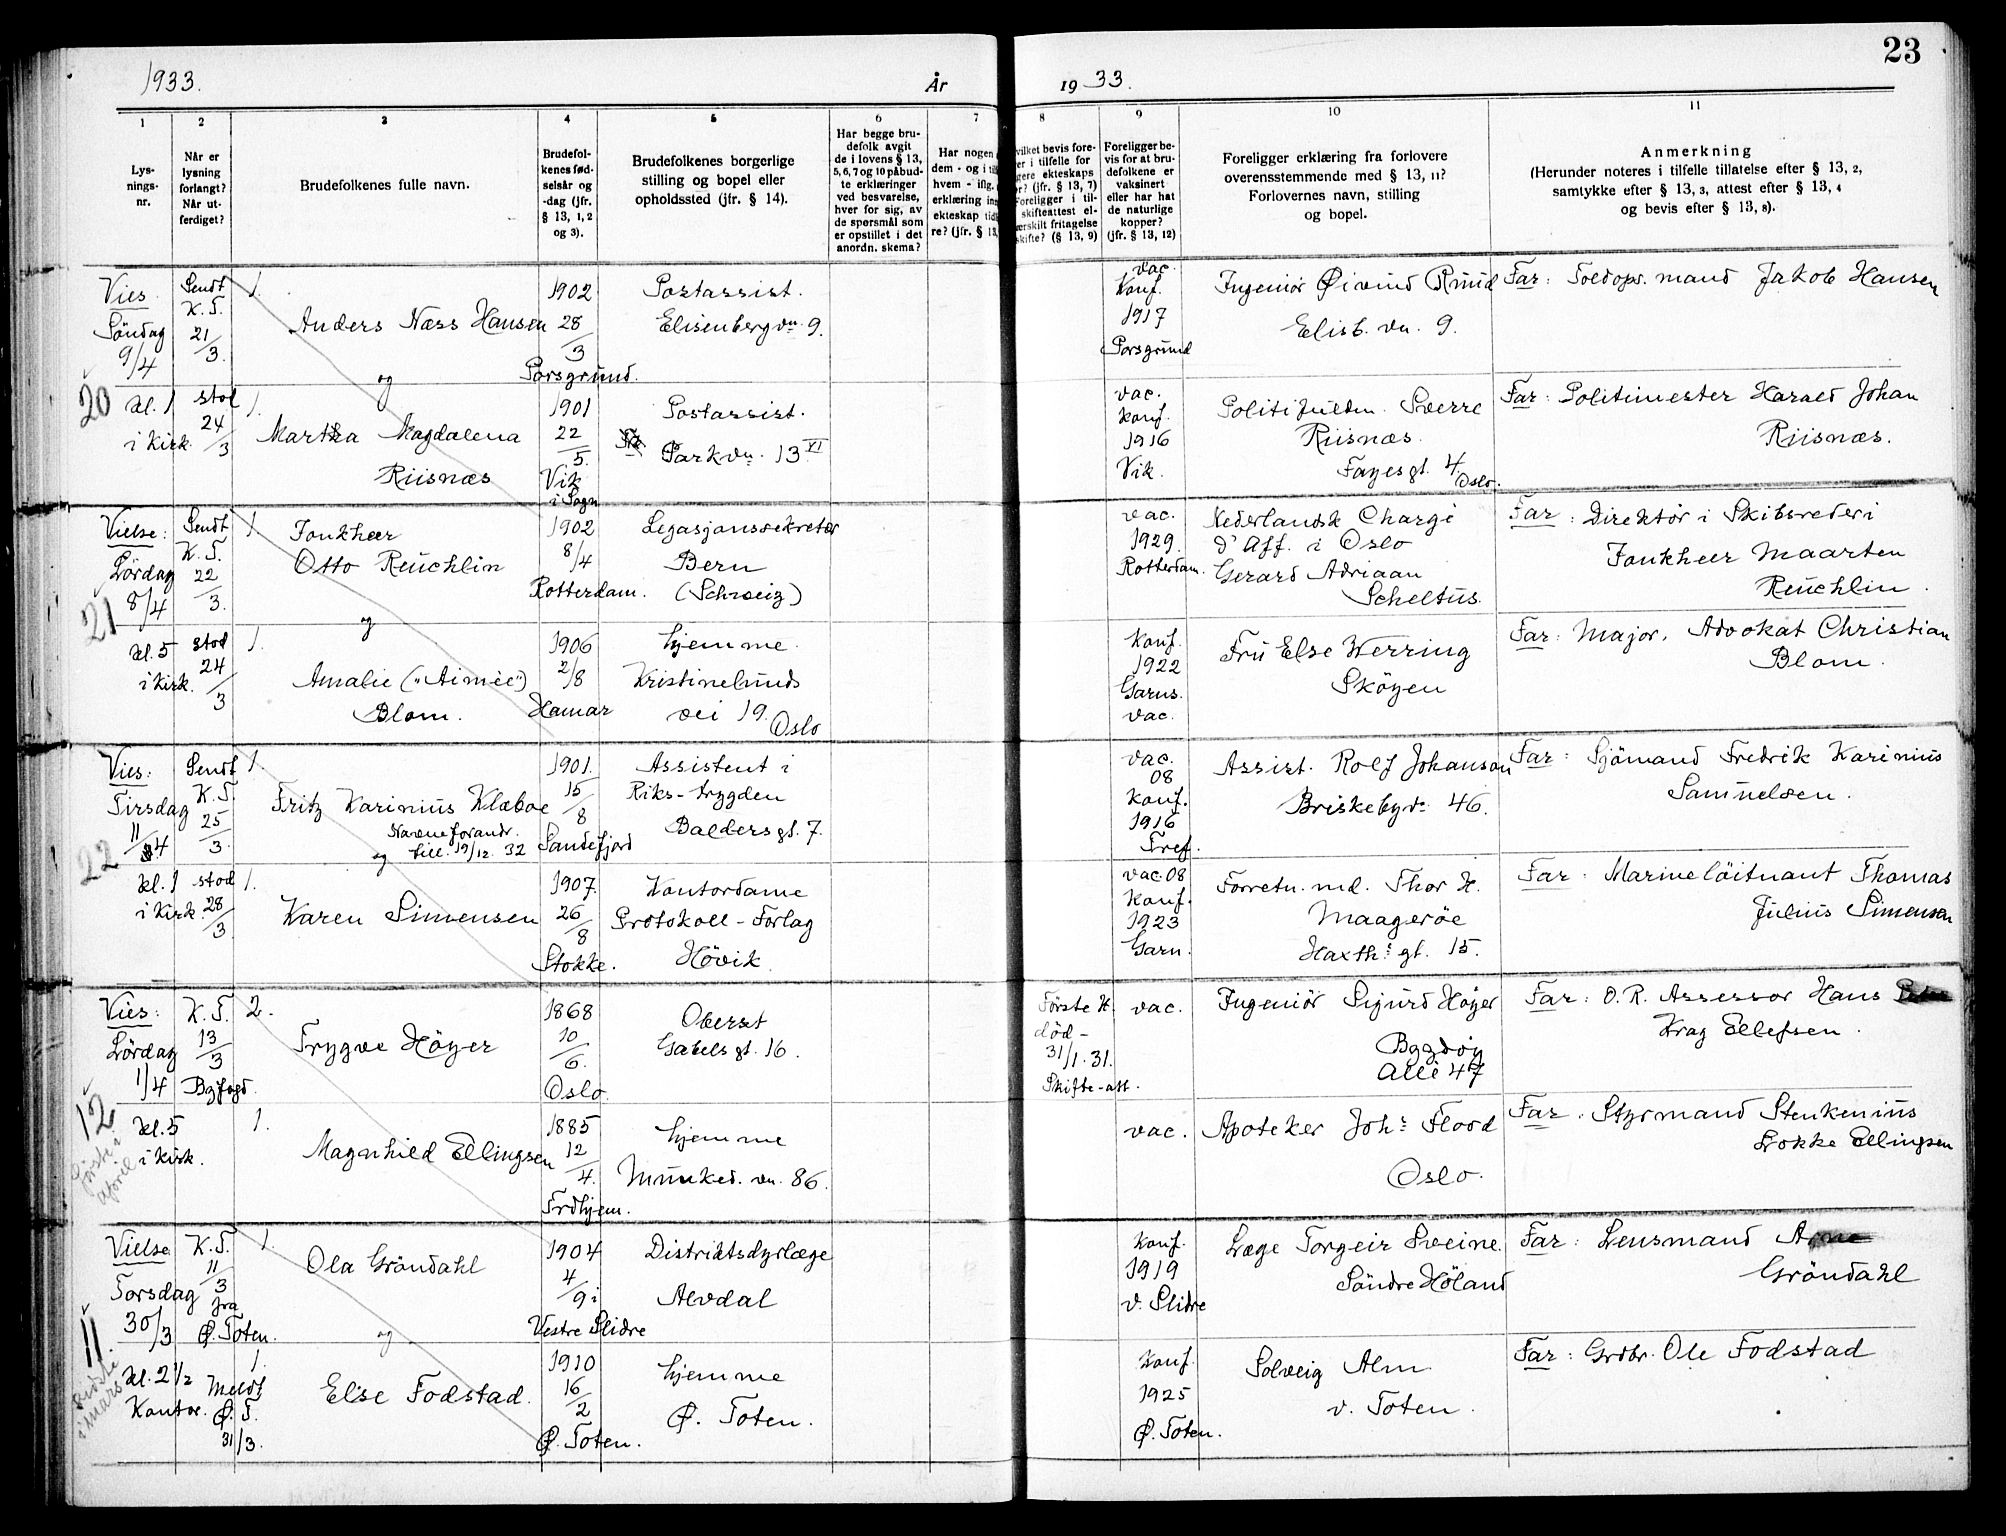 23
1933.
År
19 33.
1
Lys-
nings-
nr.
2
Når er
lysning
forlangt?
Når ut-
ferdiget?
3
Brudefolkenes fulle navn.
4
Brudefol-
kenes fød-
selsår og
-dag (jfr.
§ 13, 1, 2
og 3).
5
Brudefolkenes borgerlige
stilling og bopel eller
opholdssted (jfr. § 14).
6
Har begge bru-
defolk avgit
de i lovens § 13,
5, 6, 7 og 10 påbud-
te erklæringer
ved besvarelse,
hver for sig, av
de spørsmål som
er opstillet i det
anordn. skema?
7
Har nogen
dem - og i
hvem - iflg.
erklæring in
ekteskap tid
re? (jfr. § 13,
8
vilket bevis fore-
er i tilfelle for
gere ekteskaps
r? (jfr. § 13, 7)
Foreligger i til-
skifteattest el-
ærskilt fritagelse
skifte? (§ 13, 9)
9
Foreligger be-
vis for at bru-
defolkene er
vaksinert
eller har hat
de naturlige
kopper?
(jfr. § 13, 12)
10
Foreligger erklæring fra forlovere
overensstemmende med § 13, 11?
Forlovernes navn, stilling
og bopel.
11
Anmerkning
(Herunder noteres i tilfelle tillatelse efter § 13, 2,
samtykke efter § 13, 3, attest efter § 13, 4
og bevis efter § 13, 8).
20
Vies.
Söndag
9/4
kl. 1
i Kirk.
Sendt
K.T.
21/3.
stod
24/3
1.
Anders Næss Hansen
og
1.
Martha Magdalena
Riisnæs
1902
28/3
Porsgrund.
1901
22/5.
Vik
i Sogn
Postassist.
Elisenbergvn 9.
Postassist.
Parkvn. 13 VI
vac.
Konf.
1917
Porsgrund
vac.
Konf.
1916
Vik.
Ingeniör Øivind Ruud
Elisb. vn. 9.
Politifuldm. Sverre
Riisnæs.
Fayesgt. 4.
Oslo.
Far: Toldops.mand Jakob Hansen
Far: Politimester Harald Johan
Riisnæs.
21
Vielse:
Lördag
8/4
kl. 5
i Kirk.
Sendt
K.T.
22/3.
stod
24/3
1.
Jonkheer
Otto Reuchlin
og
1.
Amalie ("Aimée")
Blom.
1902
8/4
Rotterdam.
1906
2/8
Hamar
Legasjonssekretær
Bern
(Schweiz)
hjemme.
Kristinelunds
vei 19.
Oslo
vac.
1929.
Rotterdam.
Konf.
1922
Garns.
vac.
Nederlandsk Chargé
d'Aff. i Oslo
Gerard Adriaan
Scheltus.
Fru Else Werring
Sköyen
Far: Direktör i Skibsrederi
Jonkheer Maarten
Reuchlin.
Far: Major, Advokat Christian
Blom.
22
Vies:
Tirsdag
11/4
kl. 1
i Kirk.
Sendt
K.T.
25/3.
stod
28/3
1.
Fritz Karinius Klæboe
Navneforandr.
till. 19/12. 32
og
1.
Karen Simensen
1901.
15/8
Sandefjord
1907.
26/8
Stokke.
Assistent i
Riks-trygden
Baldersgt. 7.
Kontordame
Protokoll-Forlag
Hövik
vac.
08
Konf.
1916
Tref.
vac. 08
Konf.
1923
Garn.
Assist. Rolf Johanson
Briskebyv. 46.
Forretn. md. Thor H.
Maageröe
Haxth.s gt. 15.
Far: Sjömand Fredrik Karinius
Samuelsen.
Far: Marinelöitnant Thomas
Julius Simensen
12
første i
april
Vies:
Lördag
1/4
kl. 5
i Kirk.
K.T.
13/3
Byfogd.
2.
Trygve Höyer
1.
Magnhild Ellingsen
1868
10/6.
Oslo.
1885
12/4.
Trdhjem.
Oberst
Gabelsgt. 16.
hjemme
Munked. vn. 86.
Förste H.
död -
31/1. 31.
Skifte-att.
vac.
vac.
Ingeniör Sigurd Höyer
Bygdöy
Allé 47
Apoteker Joh.s Flood
Oslo.
Far: O.R. Assessor Hans
Krag Ellefsen.
Far: Styrmand Stenkenius
Lokke Ellingsen
11
sidste
i mars
Vielse
Torsdag
30/3
kl. 2 1/2
Kontor.
K.T.
11/3
fra
Ø. Toten.
Meldt
Ø. T.
31/3.
1.
Ola Gröndahl
og
1.
Else Fodstad.
1904
4/9 i
Vestre Slidre
1910
16/2
Ø. Toten.
Distriktsdyrlæge
Alvdal
hjemme
Ø. Toten.
Konf.
1919
v. Slidre
Konf.
1925
Ø. Toten.
Læge Torgeir Sveine.
Söndre Höland
Solveig Alm
v. Toten.
Far: Lensmand Arne
Gröndahl
Far: Grdbr. Ole Fodstad